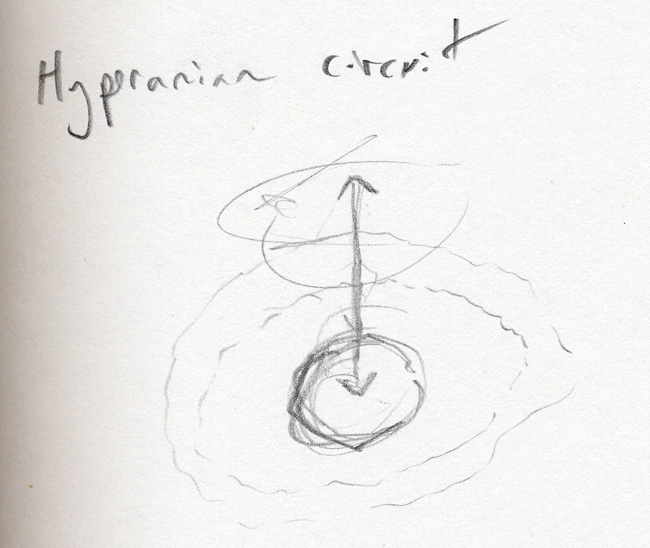 Hyperanian circuit